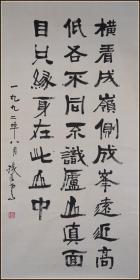 橫看成嶺側成峰遠近高
低各不同不識廬山真面
目只緣身在此山中
一九九二年八月